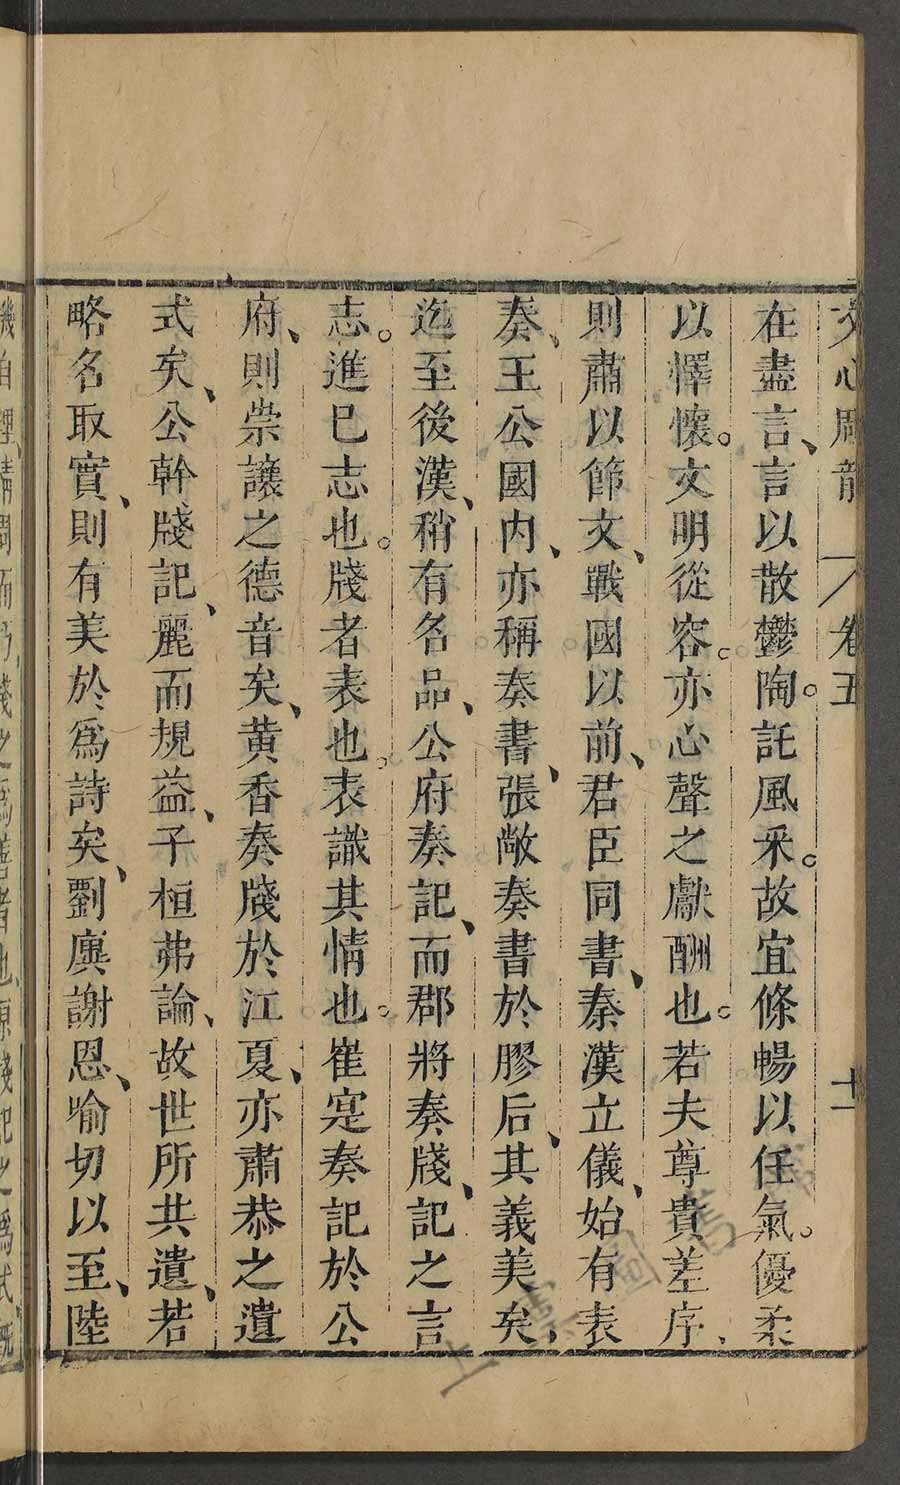 文心雕龍 卷五 十一
在盡言、言以散鬱陶。託風采。故宜條暢以任氣。優柔
以懌懷。文明從容。亦心聲之獻酬也。若夫尊貴差序、
則肅以節文、戰國以前、君臣同書、秦漢立儀、始有表
奏、王公國内、亦稱奏書、張敞奏書於膠后、其義美矣、
迄至後漢、稍有名品、公府奏記、而郡將奏牋、記之言
志。進已志也。牋者表也。表識其情也。崔寔奏記於公
府、則崇讓之德音矣、黄香奏牋於江夏、亦肅恭之遺
式矣、公幹牋記、麗而規益、子桓弗論、故世所共遺、若
略名取實、則有美於爲詩矣、劉廙謝恩、喻切以至、陸
機自理、情周而巧、牋之爲善者也、原牋記之爲式、既